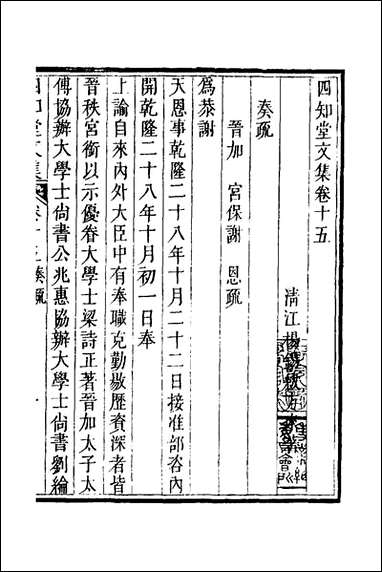 四知堂文集卷十五
清江楊
奏疏
晉加 宮保謝 恩疏
爲恭謝
天恩事乾隆二十八年十月二十二日接准部咨內
開乾隆二十八年十月初一日奉
上諭自來內外大臣中有奉職克勤敭歷資深者皆
晉秩宮銜以示優眷大學士梁詩正著晉加太子太
傅協辦大學士尙書公兆惠協辦大學士尙書劉綸
四知堂文集 卷十五 奏疏 一